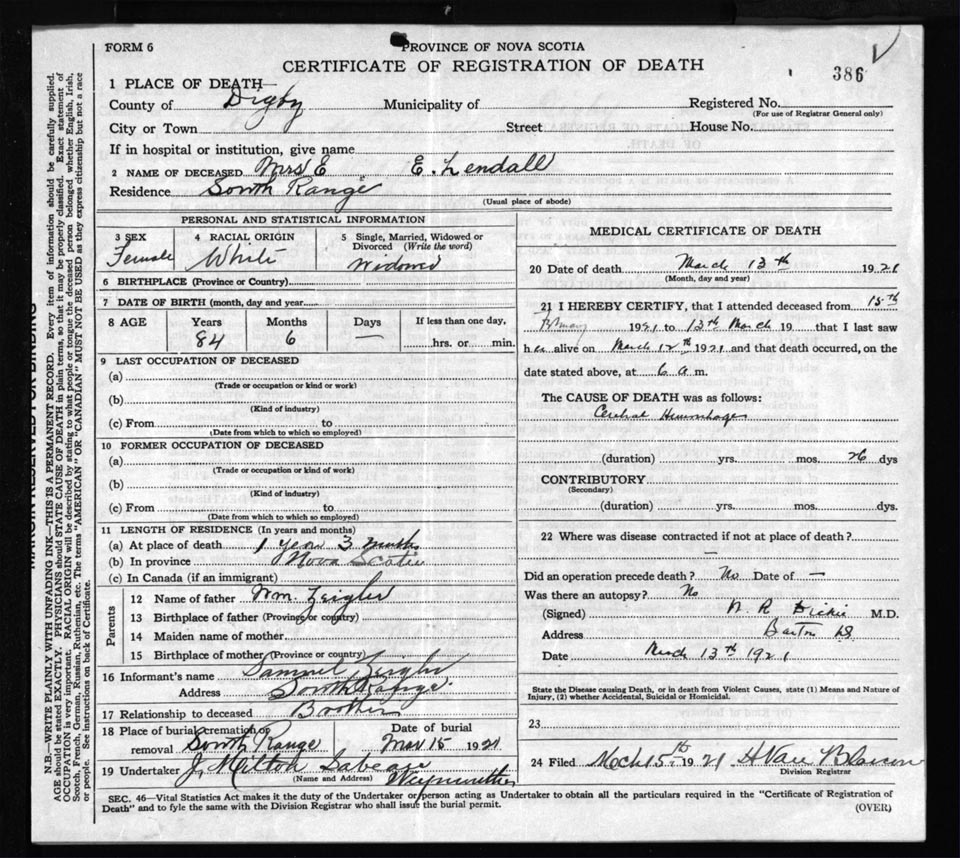 FORM 6
PROVINCE OF NOVA SCOTIA
CERTIFICATE OF REGISTRATION OF DEATH
386
1 PLACE OF DEATH
County of Digby Municipality of Registered No.
(For use of Registrar General only)
City or Town Street House No.
If in hospital or institution, give name
2 NAME OF DECEASED Mrs E E. Lendall
Residence South Range
(Usual place of abode)
PERSONAL AND STATISTICAL INFORMATION
3 SEX 4 RACIAL ORIGIN 5 Single, Married, Widowed or
Divorced (Write the word)
Female White Widowed
6 BIRTHPLACE (Province or Country)
7 DATE OF BIRTH (month, day and year)
8 AGE Years Months Days If less than one day,
84 6 — hrs. or min.
9 LAST OCCUPATION OF DECEASED
(a)
(Trade or occupation or kind or work)
(b)
(Kind of industry)
(c) From to
(Date from which to which so employed)
10 FORMER OCCUPATION OF DECEASED
(a)
(Trade or occupation or kind of work)
(b)
(Kind of industry)
(c) From to
(Date from which to which so employed)
11 LENGTH OF RESIDENCE (In years and months)
(a) At place of death 1 year 3 months
(b) In province Nova Scotia
(c) In Canada (if an immigrant)
Parents
12 Name of father Wm. Zeigler
13 Birthplace of father (Province or country)
14 Maiden name of mother
15 Birthplace of mother (Province or country)
16 Informant's name Samuel Zeigler
Address South Range
17 Relationship to deceased Brother
18 Place of burial cremation or Date of burial
removal South Range Mar 15 1921
19 Undertaker J. Milton Sabean Weymouth
(Name and Address)
MEDICAL CERTIFICATE OF DEATH
20 Date of death March 13th 1921
(Month, day and year)
21 I HEREBY CERTIFY, that I attended deceased from 15th
1921 to 13th March 19 that I last saw
her alive on March 12th 1921 and that death occurred, on the
date stated above, at 6 a. m.
The CAUSE OF DEATH was as follows:
Cerebral Hemorrhage
(duration) yrs. mos. 26 dys
CONTRIBUTORY
(Secondary)
(duration) yrs. mos. dys.
22 Where was disease contracted if not at place of death?
—
Did an operation precede death? No Date of —
Was there an autopsy? No
(Signed) W. R. Dickie M.D.
Address Barton NS
Date March 13th 1921
State the Disease causing Death, or in death from Violent Causes, state (1) Means and Nature of
Injury, (2) whether Accidental, Suicidal or Homicidal.
23
24 Filed Mch 15th 1921 H Van
Division Registrar
SEC. 46—Vital Statistics Act makes it the duty of the Undertaker or person acting as Undertaker to obtain all the particulars required in the "Certificate of Registration of
Death" and to fyle the same with the Division Registrar who shall issue the burial permit.
(OVER)
MARGIN RESERVED FOR BINDING
N.B.—WRITE PLAINLY WITH UNFADING INK—THIS IS A PERMANENT RECORD. Every item of information should be carefully supplied.
AGE should be stated EXACTLY. PHYSICIANS should STATE CAUSE OF DEATH in plain terms, so that it may be properly classified. Exact statement of
OCCUPATION is very important. RACIAL ORIGIN will be described by stating to what people or tongue the deceased person belonged whether English, Irish,
Scotch, French, German, Russian, Ruthenian, etc. The terms "AMERICAN" OR "CANADIAN" MUST NOT BE USED as they express citizenship but not a race
or people. See instructions on back of Certificate.